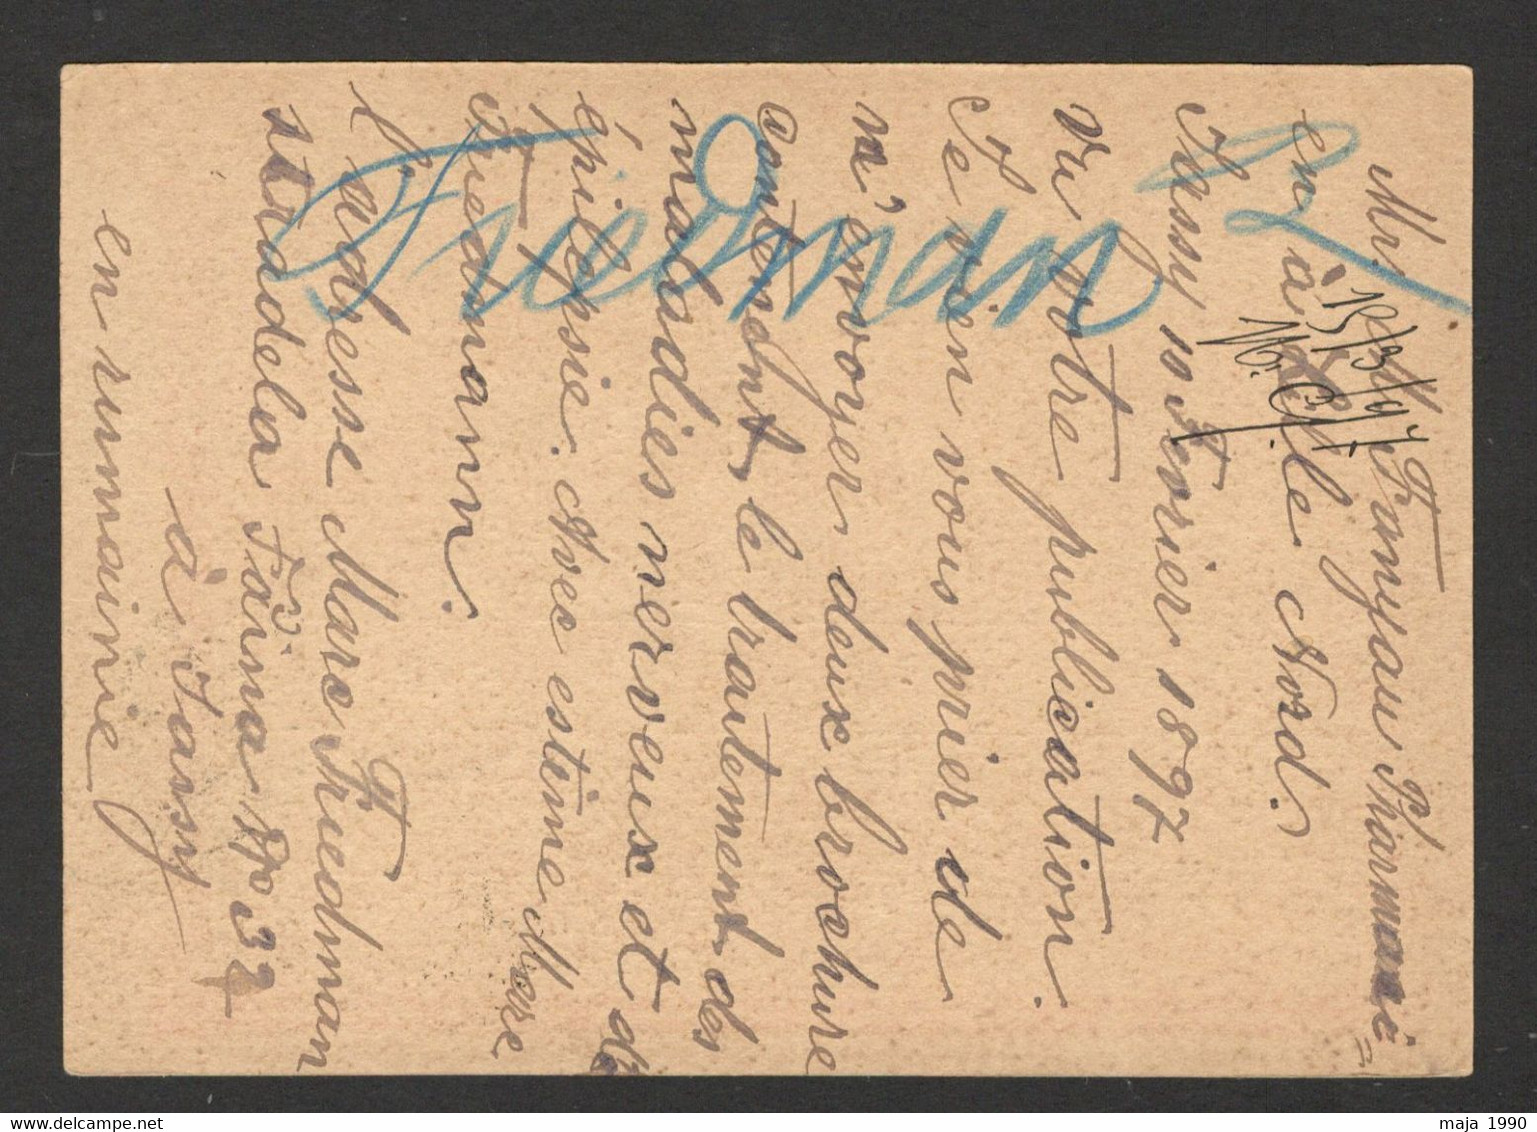 Mr. Fanyau Pharmacie=
en à Lille Nord.
Jassy 10 Fevrier 1897
Vu votre publication.
Je vien vous prier de
m'envoyer deux brochure
contenent, le traitement des
maladies nerveux et d
épilepsie. Avec estime Marc
Friedmann.
L'adresse Marc Friedman
stradela Faina No 32
à Jassy
en rumainie
Friedman
13/3/97
maja 1990